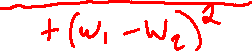 +(w₁-w₂)²